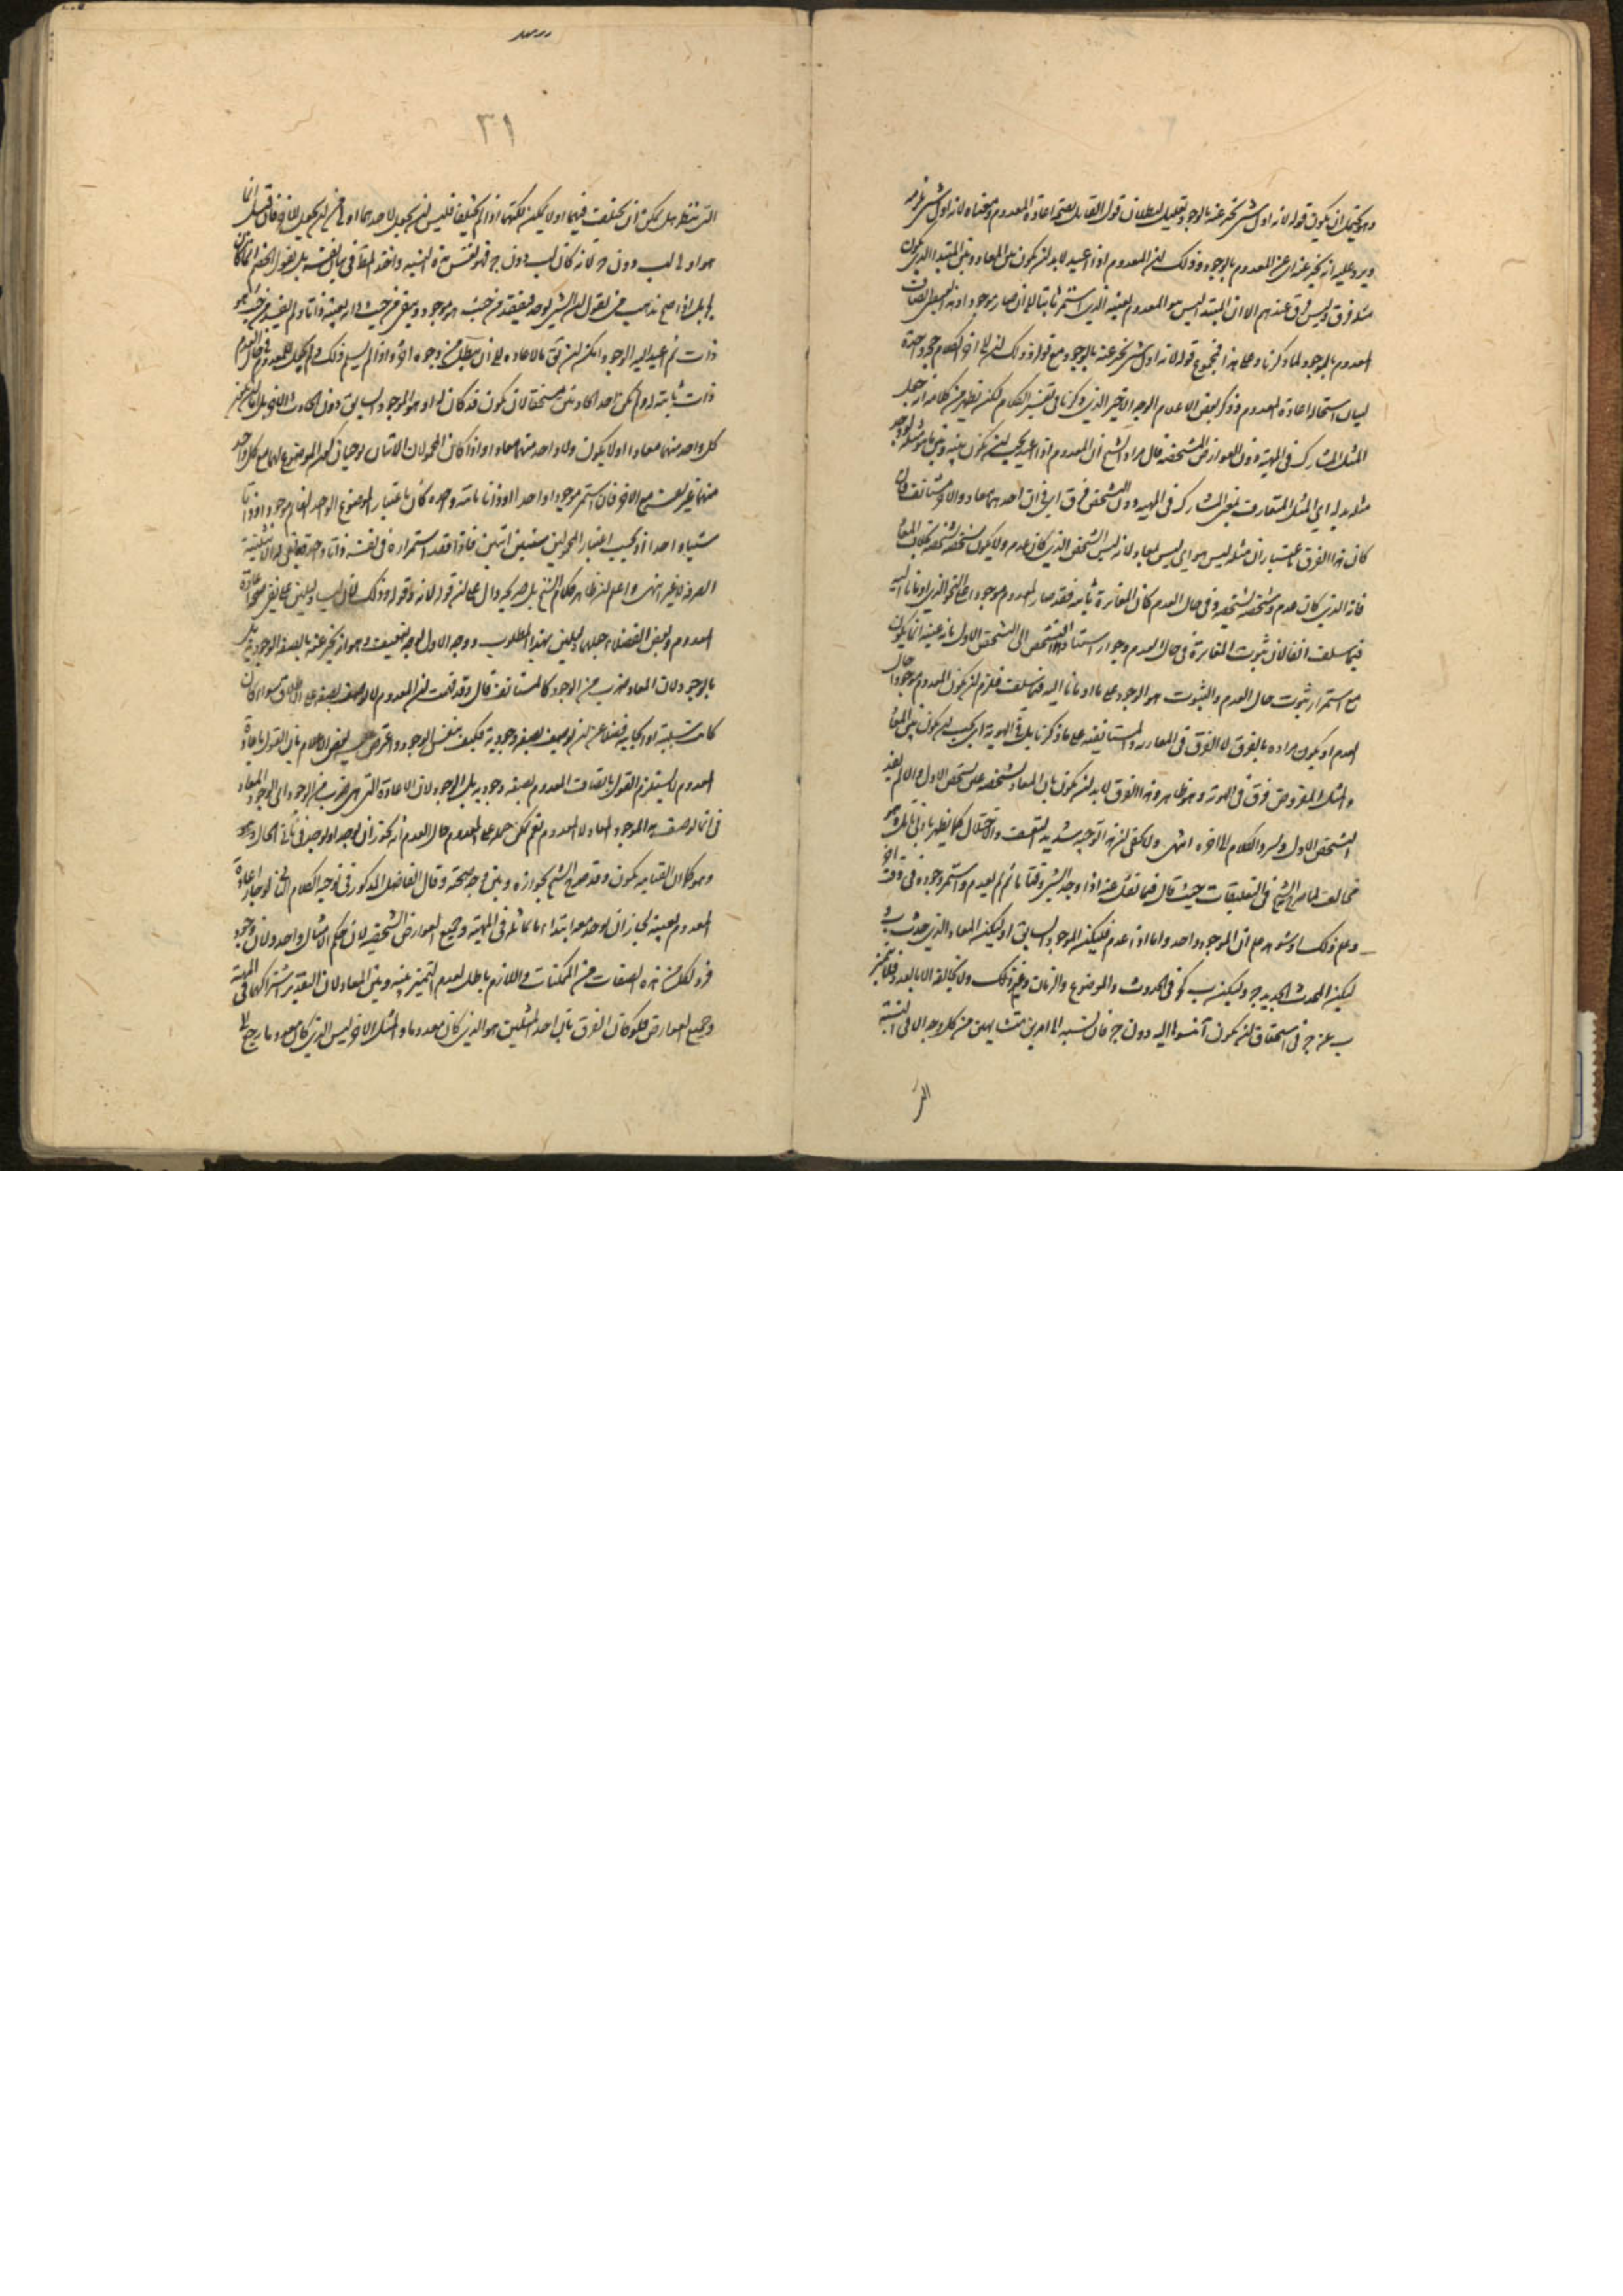 وهو يحتمل ان يكون قوله لانه اول شئ يخبر عنه بالوجود تعليل لبطلان قول القائل بصحة اعادة المعدوم ومعناه لانه اول شئ
ويرد عليه انه يخبر عنه اى عن المعدوم بالوجود وذلك ان المعدوم اذا اعيد لابد ان يكون بين المعاد وبين المبتدا الذى يكون
مثله فرق وليس فرق عندهم الا ان المبتدا ليس هو المعدوم بعينه الذى استمر ثابتا الى ان صار موجودا وهذا
المعدوم بالموجود لما ذكرنا وعلى هذا فمجموع قوله لانه اول شئ يخبر عنه بالوجود مع قوله وذلك ان الى اخر الكلام حجة واحدة
لبيان استحالة اعادة المعدوم وذكر بعض الاعلام الوجه الاخير الذى ذكرنا فى تفسير الكلام لكن يظهر من كلامه انه حمل
المثل المشارك فى المهية دون العوارض المشخصة قال مراد الشيخ ان المعدوم اذا اعيد يجب ان يكون بينه وبين ما هو مثله
مثله بدله اى المثل المتعارف بمعنى المشارك فى المهية دون التشخص فرق اى فرق احدهما معاد والاخر مستانف
كان هذا الفرق باعتبار ان مثله ليس هو اى ليس المعاد لانه ليس الشخص الذى كان عدم ولا يكون تشخصه تشخصه بخلاف المعاد
فانه الذى كان عدم وتشخصه تشخصه وفى حال العدم كان المغايرة ثابتة فقد صار المعدوم موجودا على النحو الذى اومانا اليه
فيما سلف انفا لان ثبوت المغايرة فى حال العدم وجواز استناد التشخص الى الشخص الاول بانه عينه انما يكون
مع استمرار ثبوت حال العدم والثبوت هو الوجود على ما اومانا اليه فيما سلف فيلزم ان يكون المعدوم موجودا حال
العدم او يكون مراده بالفرق لا الفرق فى المعادية والمستانفية على ما ذكرنا بل فى الهوية اى يجب ان يكون بين المعاد
والمثل المفروض فرق فى الهوية وهو ظاهر وهذا الفرق لابد ان يكون بان المعاد تشخصه عين تشخص الاول والا لم يعد
الشخص الاول ويسرد الكلام الى اخره انتهى ولا يخفى ان هذا التوجيه شديد التعسف والاختلال كما يظهر بادنى تامل وهو
مخالف لما صرح الشيخ فى التعليقات حيث قال فيما نقل عنه اذا وجد الشئ وقتا ما ثم لم يعدم واستمر وجوده فى وقت اخر
وعلم ذلك او شوهد علم ان الموجود واحد واما اذا عدم فليكن الموجود السابق ا وليكن المعاد الذى حدث ب
ليكن المحدث الجديد ج وليكن ب كج فى الحدوث والموضوع والزمان وغير ذلك ولا يخالفه الا بالعدد فلا يتميز
ب عن ج فى استحقاق ان يكون ا منسوبا اليه دون ج فان نسبة ا الى امرين متشابهين من كل وجه الا فى النسبة
التى
٣١
التى ننظر هل يمكن ان يختلف فيهما او لا يمكن لكنهما اذا لم يختلفا فليس ان يجعل لاحدهما اولى من ان يجعل للاخر فان قيل انما
هو اولى لب دون ج لانه كان لب دون ج فهو نفس هذه النسبة واخذ المط فى بيان نفسه بل يقول الخصم انما كان
لج بل اذا صح مذهب من يقول ان الشئ يوجد فيفقد من حيث هو موجود ويبقى من حيث ذاته بعينه ذاتا ولم يفقد من حيث هو
ذات ثم اعيد اليه الوجود امكن ان يق بالاعادة الى ان يبطل من وجوه اخر واذا لم يسلم ذلك ولم يجعل للمعدوم فى حال العدم
ذات ثابتة لم يكن احد الحادثين مستحقا لان يكون قد كان له او هو الموجود السابق دون الحادث الاخر بل اما ان يكون
كل واحد منهما معادا او لا يكون ولا واحد منهما معادا واذا كان المحمولان الاثنان يوجبان كون الموضوع لهما مع كل واحد
منهما غير نفسه مع الاخر فان استمر موجودا واحدا او ذاتا ثابتة واحدة كان باعتبار الموضوع الواحد القائم موجودا وذاتا
شيئا واحدا وبحسب اعتبار المحمولين شيئين اثنين فاذا فقد استمراره فى نفسه ذاتا واحدة بقى له الاثنينية
الصرفة لا غير انتهى واعلم ان ظاهر كلام الشيخ بل صريحه دال على ان قوله لانه وقوله وذلك ان ليسا دليلين على نفى صحة اعادة
المعدوم وبعض الفضلاء جعلهما دليلين بهذا المطلوب ووجه الاول بوجه ضعيف وهو انه يخبر عنه بالصفة الوجودية بل
بالوجود لان المعاد ضرب من الوجود كالمستانف قال وقد قلت ان المعدوم لا يوصف بصفة على الاطلاق سواء كان
كانت سلبية او ايجابية فضلا عن ان يوصف بصفة وجودية فكيف بنفس الوجود واعترض عليه بعض الاعلام بان القول باعادة
المعدوم لا يستلزم القول باتصاف المعدوم بصفة وجودية بل الوجود لان الاعادة التى هى ضرب من الوجود اى الوجود المعاد
فى انما يوصف به الموجود المعاد لا المعدوم نعم يمكن حمله على المعدوم حال العدم انه يجوز ان يوجد او يوجد فى ثانى الحال
وهو كالان القيامة يكون وقد صرح الشيخ بجوازه وبين وجه صحته وقال الفاضل المذكور فى توجيه الكلام الثانى لو جاز اعادة
المعدوم بعينه لجاز ان يوجد معه ابتداء ما يماثله فى المهية وجميع العوارض الشخصية لان حكم الامثال واحد ولان وجود
فرد لكل من هذه الصفات من الممكنات واللازم باطل لعدم التميز بينه وبين المعاد لان التقدير اشتراكهما فى المهية
وجميع العوارض فلو كان الفرق بان احد المثلين هو الذى كان معدوما والمثل الاخر ليس الذى كان معدوما رجع الى